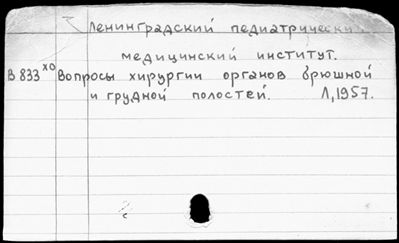 Ленинградский педиатрически
медицинский институт.
В 833 хо Вопросы хирургии органов брюшной
и грудной полостей. Л, 1957.